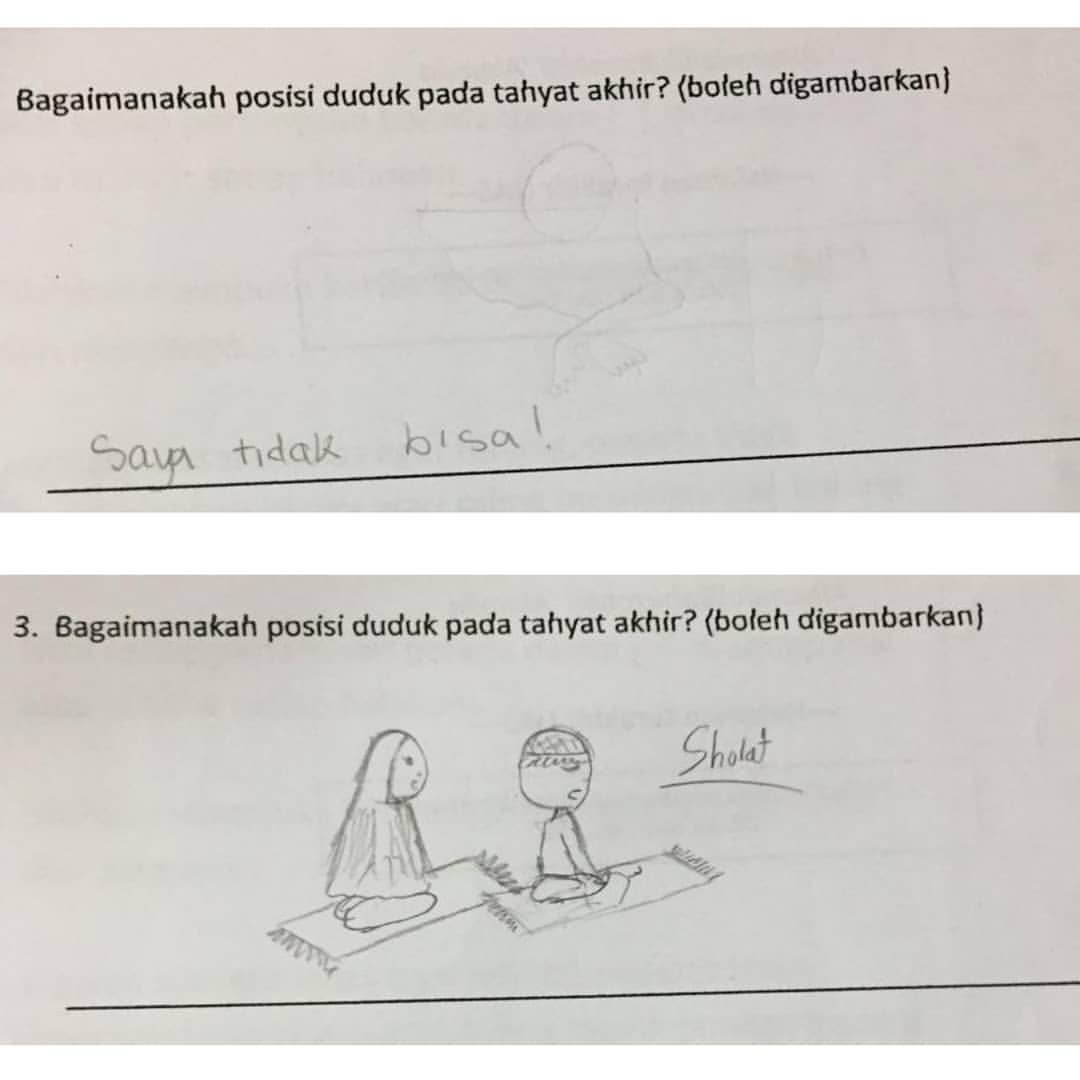 Bagaimanakah posisi duduk pada tahyat akhir? (boleh digambarkan)
Saya tidak bisa!
3. Bagaimanakah posisi duduk pada tahyat akhir? (boleh digambarkan)
Sholat